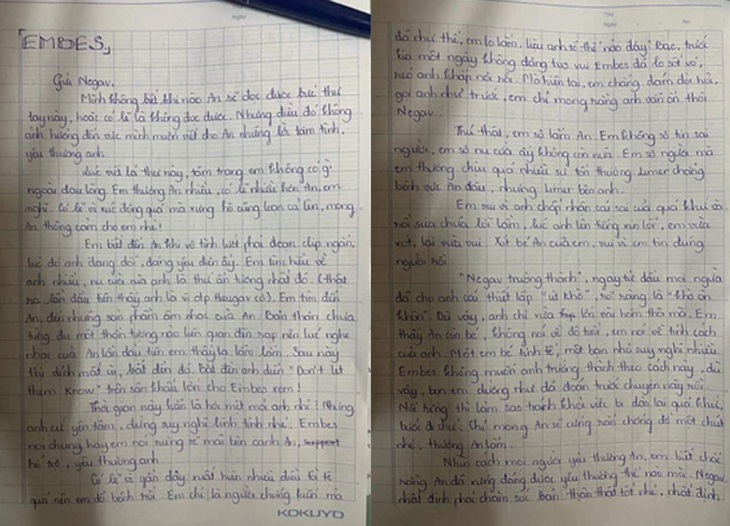 「EMBES」
Gửi Negav.
Mình không biết khi nào An sẽ đọc được bức thư
tay này, hoặc có lẽ là không đọc được. Nhưng điều đó không
ảnh hưởng đến việc mình muốn viết cho An những lời tâm tình,
yêu thương anh.
Lúc viết lá thư này, tâm trạng em không có gì
ngoài đau lòng. Em thương An nhiều, có lẽ nhiều hơn An, em
nghĩ. Có lẽ vì xúc động quá mà xưng hô cũng loạn cả lên, mong
An thông cảm cho em nhé!
Em biết đến An khi vô tình lướt phải đoạn clip ngắn,
lúc đó anh đang dỗi, đáng yêu điên ấy. Em tìm hiểu về
anh nhiều, nụ cười của anh là thứ ấn tượng nhất đó. (thật
ra lần đầu tiên thấy anh là vì clip
cơ). Em tìm đến
An, đến những sản phẩm âm nhạc của An. Bản thân chưa
từng đu một thần tượng nào liên quan đến rap nên lúc nghe
nhạc của An lần đầu tiên em thấy lạ lắm lắm. Sau này
thì dính mất rồi, bắt đền đó. Bắt đền anh diễn "Don't let
them know" trên sân khấu lớn cho Embes xem!
Thời gian này hẳn là hơi mệt mỏi anh nhỉ? Nhưng
anh cứ yên tâm, đừng suy nghĩ linh tinh nhé. Embes
nói chung hay em nói riêng sẽ mãi bên cạnh An,
hỗ trợ, yêu thương anh.
Có lẽ vì gần đây xuất hiện nhiều điều tồi tệ
quá nên em đổ bệnh rồi. Em chỉ là người chứng kiến mà
KOKUYO
đã như thế, em lo lắm, liệu anh sẽ thế nào đây?
trước
kia một ngày không đăng tus vui Embes đã lo sốt vó,
réo anh khắp nơi rồi. Mà hiện tại, em chẳng dám đòi hỏi,
gọi anh như trước, em chỉ mong rằng anh vẫn ổn thôi
Negav.
Thú thật, em sợ lắm An. Em không sợ tin sai
người, em sợ nụ cười ấy không còn nữa. Em sợ người mà
em thương chịu quá nhiều sự tổn thương.
chẳng
bênh vực An đâu, nhưng
bên anh.
Em vui vì anh chấp nhận cái sai của quá khứ và
rồi sửa chữa lỗi lầm, lúc anh lên tiếng xin lỗi, em vừa
xót, lại vừa vui. Xót bé An của em, vui vì em tin đúng
người rồi.
"Negav trưởng thành", ngay từ đầu mọi người
đã cho anh cái thiết lập
rõ ràng là "khờ ơi
khờn". Dù vậy, anh chỉ vừa
lớn vài hôm thôi mà. Em
thấy An còn bé, không nói về độ tuổi, em nói về tính cách
của anh. Một em bé tinh tế, một bạn nhỏ suy nghĩ nhiều.
Embes không muốn anh trưởng thành theo cách này, dù
vậy, bọn em dường như đã đoán trước chuyện này rồi.
Nổi tiếng thì làm sao tránh khỏi việc bị đào lại quá khứ,
bươi đi chứ. Chỉ mong An sẽ cứng rắn chống đỡ một chút
nhé, thương An lắm.
Nhìn cách mọi người yêu thương An, em biết chắc
rằng An đã xứng đáng được yêu thương thế nào mà. Negav
nhất định phải chăm sóc bản thân thật tốt nhé, nhất định